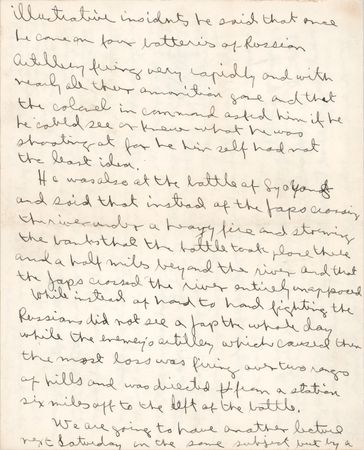 illustrative incidents he said that once
he came on four batteries of Russian
Artillery firing very rapidly and with
nearly all their ammunition gone and that
the colonel in command asked him if he
he could see or knew what he was
shooting at for he him self had not
the least idea.
He was also at the battle of
and said that instead of the Japs crossing
the river under a heavy fire and storming
the banks that the battle took place three
and a half miles beyond the river and that
the Japs crossed the river entirely unopposed
While instead of hand to hand fighting the
Russians did not see a Jap the whole day
while the enemey's artilley which caused them
the most loss was firing over two rang
of hills and was directed from a station
six miles off to the left of the battle.
We are going to have another lecture
next Saturday on the same subject but by a